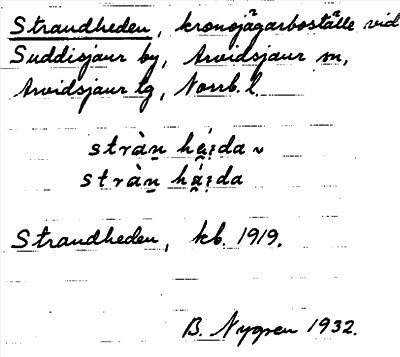 Strandheden, kronojägarboställe vid
Suddisjaur by, Arvidsjaur sn,
Arvidsjaur tg, Norrb. l.
stràn hái̯da ~
stràn hái̯da
Strandheden, kb. 1919.
B. Nygren 1932.